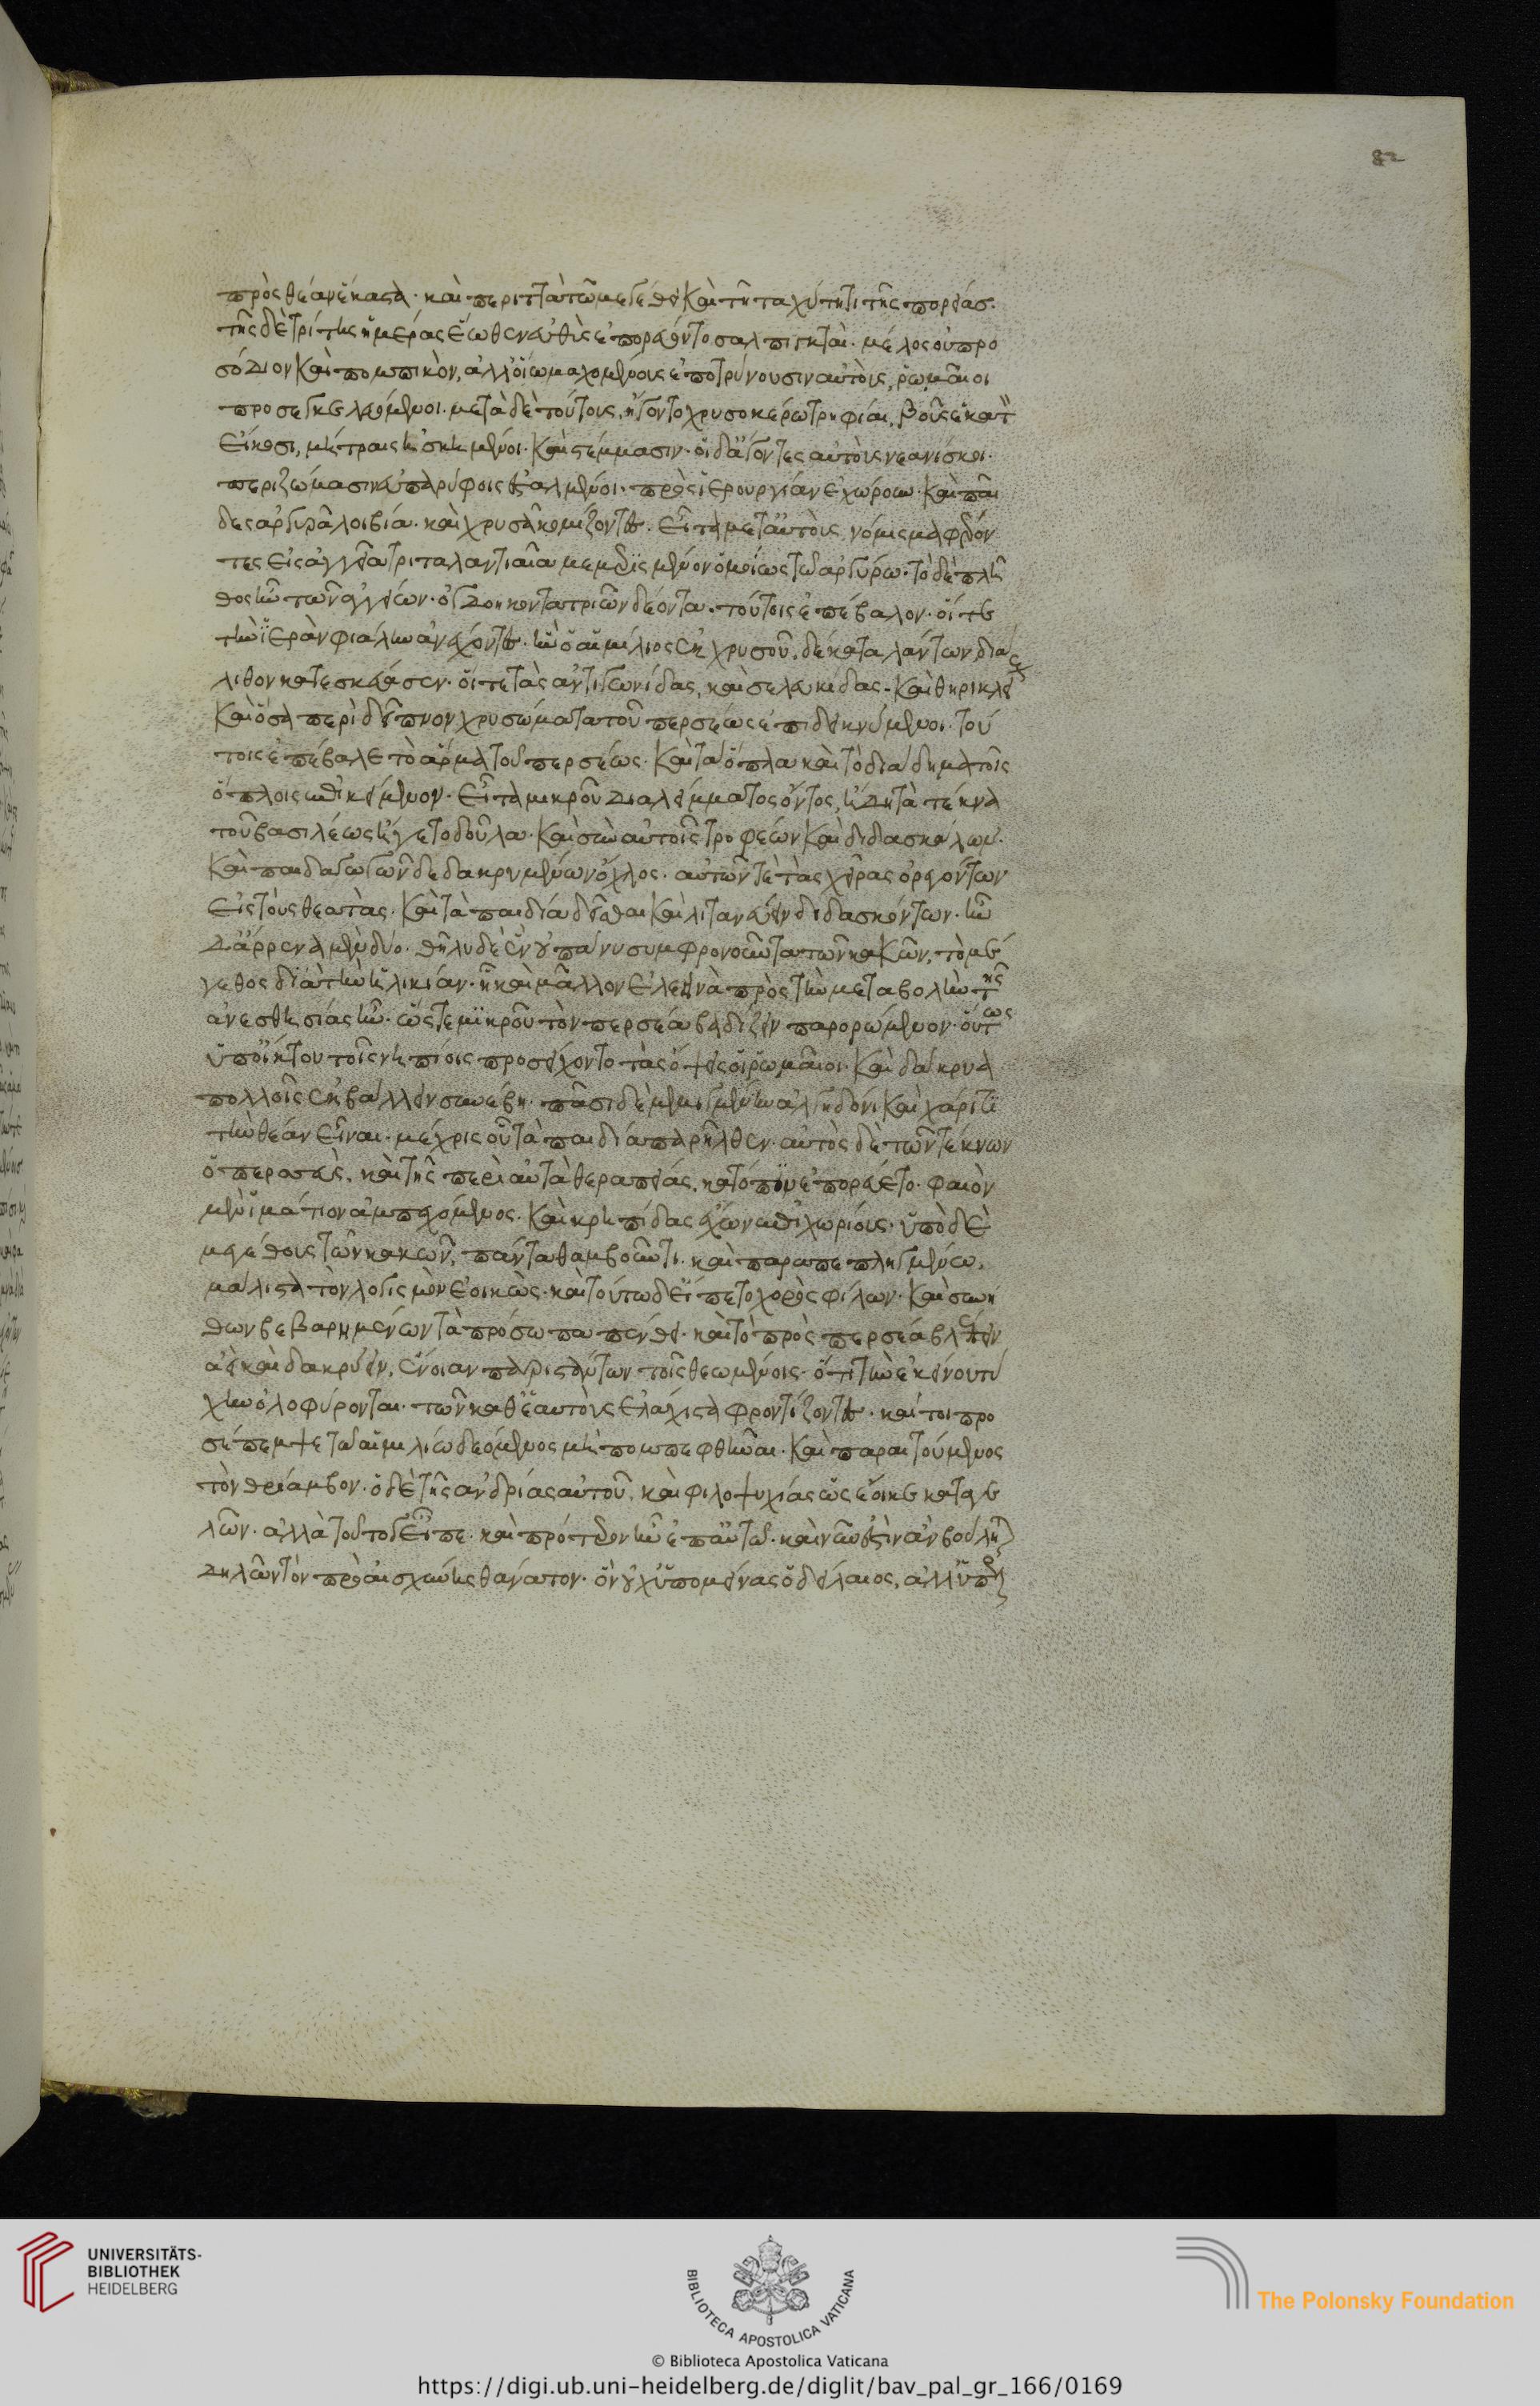 πρὸς θέαν ἕκαστα· καὶ περιττὰ τῶ μεγέθει καὶ τῆ ταχύτητι τῆς πορείας.
τῆς δὲ τρίτης ἡμέρας ἕωθεν εὐθὺς ἐπορεύοντο σαλπιγκταὶ· μέλος οὐ προ
σόδιον καὶ πομπικὸν, ἀλλ' οἵω μαχομένους ἐποτρύνουσιν αὐτοὺς, ῥωμαῖοι
προσεγκελευόμενοι. μετὰ δὲ τούτους, ἤγοντο χρυσοκέρω τροφίαι, βοῦς ἑκατὸν
εἴκοσι, μήτραις ἠσκημένοι. καὶ στέμμασιν. οἱ δ' ἄγοντες αὐτοὺς νεανίσκοι.
περιζώμασιν εὐπαρύφοις ἐσταλμένοι. πρὸς ἱερουργίαν ἐχώρουν. καὶ παῖ
δες ἀργυρᾶ λοιβία. καὶ χρυσᾶ κομίζοντες. εἶτα μετ' αὐτοὺς, νόμισμα φέρον
τες εἰς ἀγγεῖα τριταλαντιαῖα μεμερισμένον ὁμοίως τῶ ἀργύρω. τὸ δὲ πλῆ
θος ἦν τῶν ἀγγείων. ὀγδοήκοντα τριῶν δέοντα. τούτοις ἐπέβαλον. οἵ τε
τὴν ἱερὰν φιάλην ἀνέχοντες. ἣν ὁ αἰμίλιος ἐκ χρυσοῦ, δέκα ταλάντων διὰ
λιθον κατεσκεύασεν. οἵ τε τὰς ἀντιγωνίδας, καὶ σελευκίδας. καὶ θηρικλεί
καὶ ὅσα περὶ δεῖπνον χρυσώματα τοῦ περσέως ἐπιδεικνύμενοι. τού
τοις ἐπέβαλε τὸ ἅρμα τοῦ περσέως. καὶ τὰ ὅπλα καὶ τὸ διάδημα τοῖς
ὅπλοις ἐπικείμενον. εἶτα μικροῦ διαλείμματος ὄντος, ἤδη τὰ τέκνα
τοῦ βασιλέως ἤγετο δοῦλα. καὶ σὺν αὐτοῖς τροφέων καὶ διδασκάλων.
καὶ παιδαγωγῶν δεδακρυμένων ὄχλος. αὐτῶν τε τὰς χεῖρας ὀρεγόντων
εἰς τοὺς θεατὰς. καὶ τὰ παιδία δεῖσθαι καὶ λιτανεύειν διδασκόντων. ἦν
δ' ἄρρενα μὲν δύο. θῆλυ δὲ ἓν οὐ πάνυ συμφρονοῦντα τῶν κακῶν, τὸ μέ
γεθος διὰ τὴν ἡλικίαν. ἧ καὶ μᾶλλον ἐλεεινὰ πρὸς τὴν μεταβολὴν τῆς
ἀνεσθησίας ἦν. ὥστε μικροῦ τὸν περσέα βαδίζειν παρορώμενον. οὕτως
ὑπ' οἴκτου τοῖς νηπίοις προσείχοντο τὰς ὄψεις οἱ ῥωμαῖοι. καὶ δάκρυα
πολλοῖς ἐκβάλλειν συνέβη. πᾶσι δὲ μεμιγμένην ἀλγηδόνι καὶ χάριτι
τὴν θέαν εἶναι. μέχρις οὗ τὰ παιδία παρῆλθεν. αὐτὸς δὲ τῶν τέκνων
ὁ περσεὺς. καὶ τῆς περὶ αὐτὰ θεραπείας, κατόπιν ἐπορεύετο. φαιὸν
μὲν ἱμάτιον ἀμπεχόμενος. καὶ κρηπίδας ἔχων ἐπιχωρίους. ὑπὸ δὲ
μεγέθους τῶν κακῶν, πάντα θαμβοῦντι. καὶ παραπεπληγμένω,
μάλιστα τὸν λογισμὸν ἐοικὼς. καὶ τούτω δ' εἵπετο χορὸς φίλων. καὶ συνή
θων βεβαρημένων τὰ πρόσωπα πένθει. καὶ τὸ πρὸς περσέα βλέπειν
ἀεὶ καὶ δακρύειν, ἔννοιαν παριστάντων τοῖς θεωμένοις. ὅτι τὴν ἐκείνου τύ
χην ὀλοφύρονται. τῶν καθ' ἑαυτοὺς ἐλάχιστα φροντίζοντες. καίτοι προ
σέπεμψε τῶ αἰμιλίω δεόμενος μὴ πομπεφθῆναι. καὶ παραιτούμενος
τὸν θρίαμβον. ὁ δὲ τῆς ἀνδρίας αὐτοῦ, καὶ φιλοψυχίας ὡς ἔοικε καταγε
λῶν. ἀλλὰ τοῦτο γ' εἶπε. καὶ πρότερον ἦν ἐπ' αὐτῶ. καὶ νῦν ἐστὶν ἂν βούλη
δηλῶν τὸν πρὸ αἰσχύνης θάνατον. ὃν οὐχ ὑπομείνας ὁ δείλαιος, ἀλλ' ὑπ'
82
UNIVERSITÄTS-
BIBLIOTHEK
HEIDELBERG
BIBLIOTECA APOSTOLICA VATICANA
The Polonsky Foundation
© Biblioteca Apostolica Vaticana
https://digi.ub.uni-heidelberg.de/diglit/bav_pal_gr_166/0169